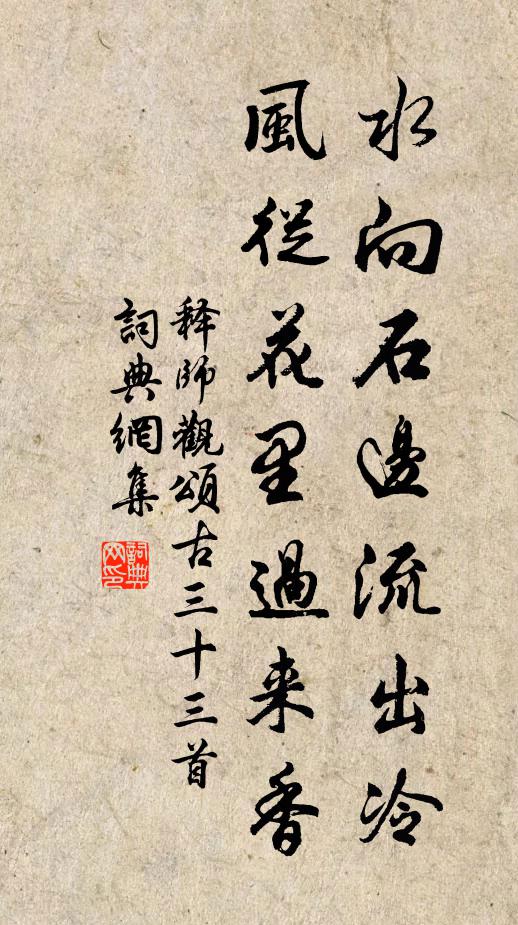 水向石邊流出冷
風從花里過来香
释師觀頌古三十三首
詞典網集
詞典网印